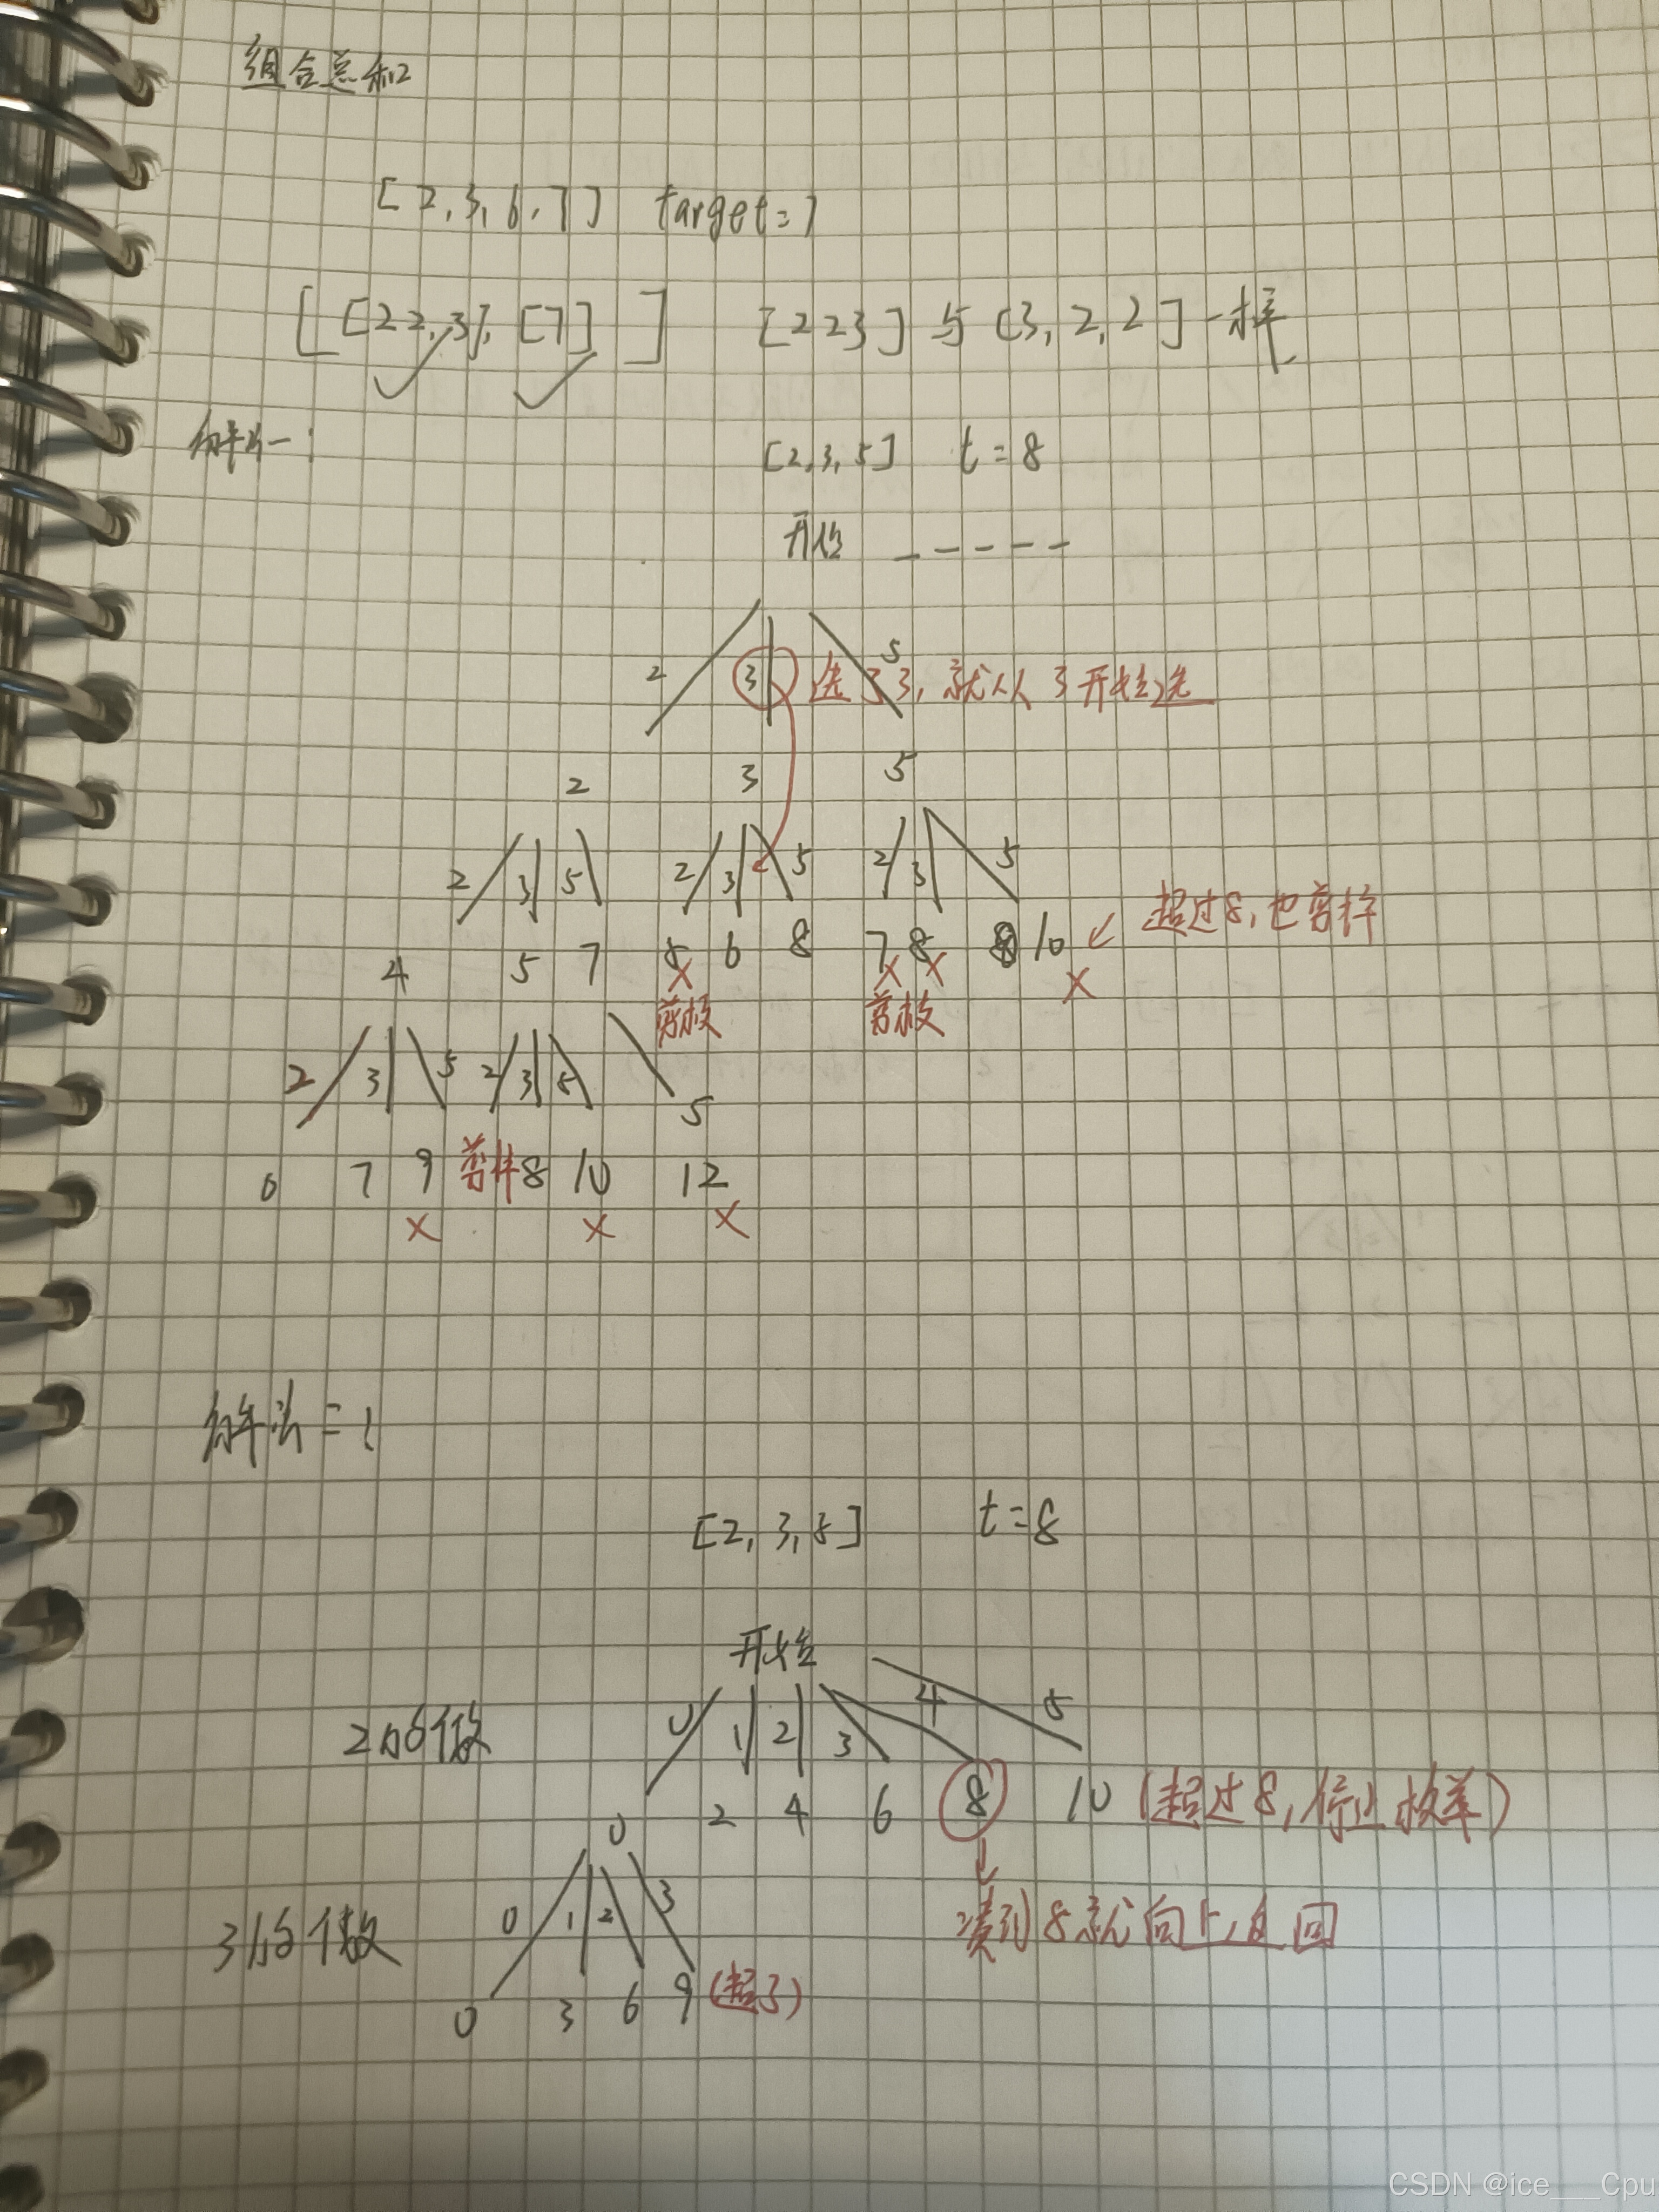 组合总和
[2,3,6,7] target=7
[[22,3],[7]] [223]与[3,2,2]一样
解法一:
[2,3,5] t=8
开始 _ _ _ _ _
2 3 5
选了3,就从3开始选
2 3 5
2 3 5 2 3 5 2 3 5
超过8,也剪枝
4 5 7 5 6 8 7 8 8 10
X X X X
剪枝 剪枝
2 3 5 2 3 5 5
6 7 9 剪枝 8 10 12
X X X
解法二:
[2,3,5] t=8
开始
2的个数 0 1 2 3 4 5
0 2 4 6 8 10 (超过8,停止枚举)
3的个数 0 1 2 3
凑到8就向上返回
0 3 6 9 (超了)
CSDN @ice___Cpu